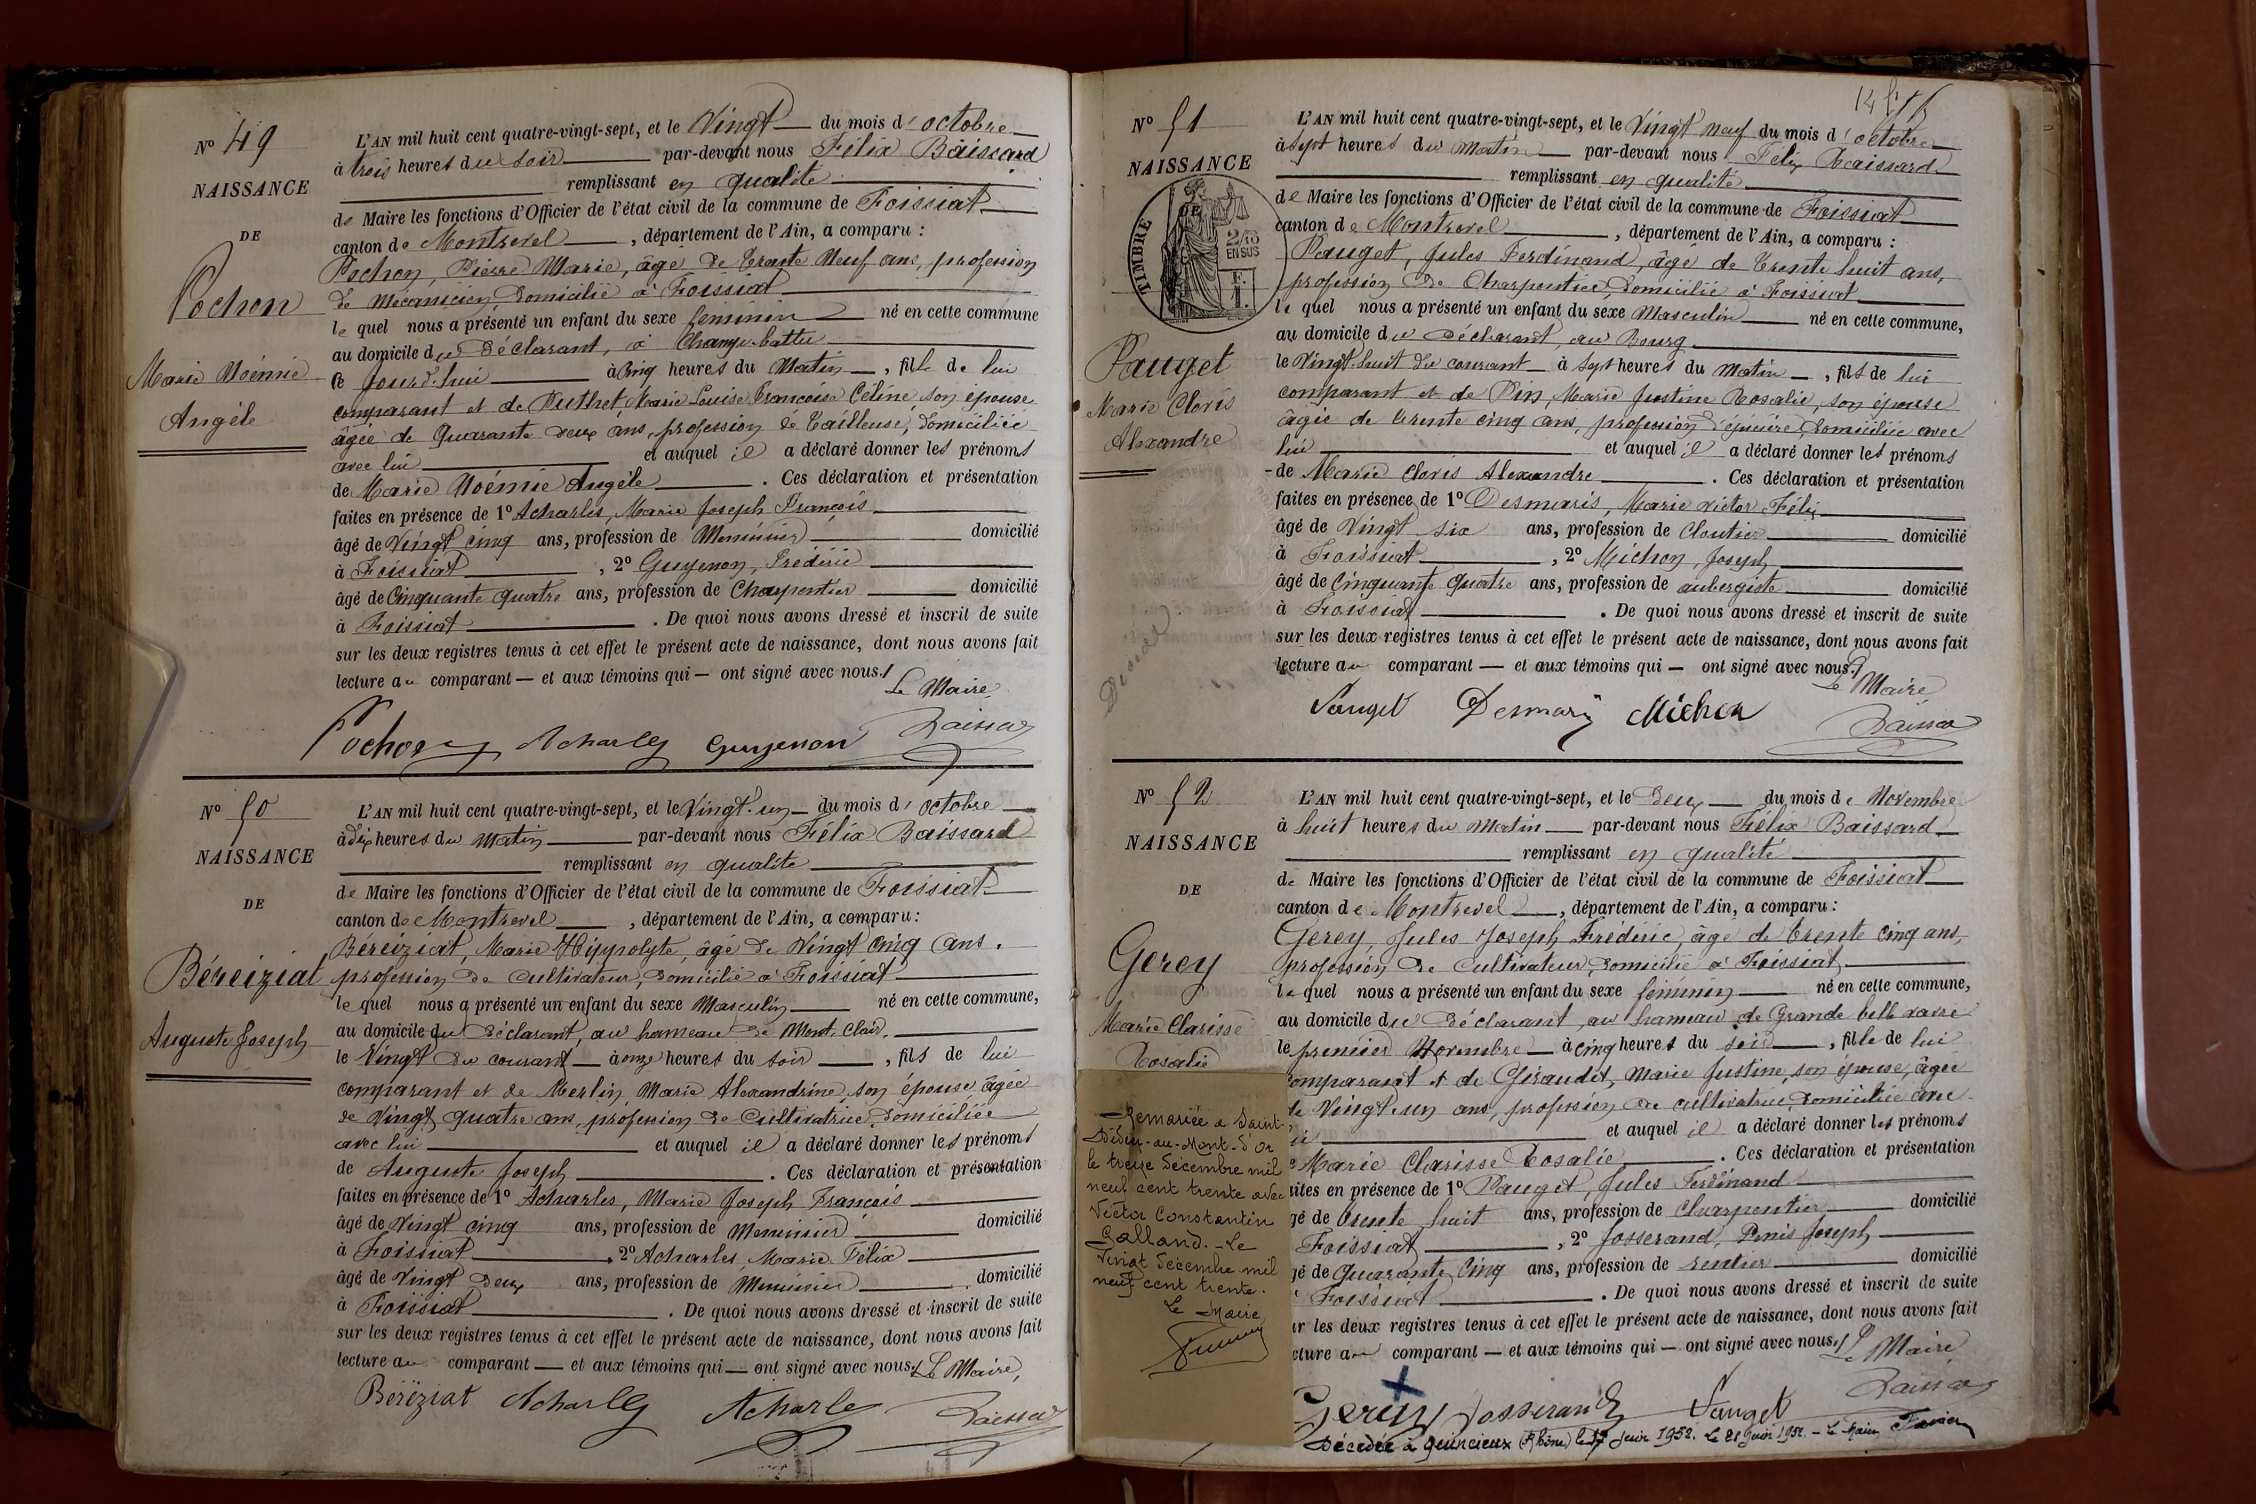 Nº 49
NAISSANCE
DE
Pochon
Marie Noémie
Angèle
L'AN mil huit cent quatre-vingt-sept, et le Vingt du mois d' octobre
à trois heures du soir par-devant nous Félix Baissard
remplissant en qualité
de Maire les fonctions d'Officier de l'état civil de la commune de Foissiat
canton de Montrevel, département de l'Ain, a comparu :
Pochon, Pierre Marie, âgé de trente Neuf ans, profession
de Mécanicien, domicilié à Foissiat
le quel nous a présenté un enfant du sexe féminin né en cette commune
au domicile du Déclarant, à Change-battu
le jourd'hui à Cinq heures du Matin, fille de lui
comparant et de Puthet, Marie Louise Françoise Céline son épouse
âgée de Quarante deux ans, profession de Tailleuse, domiciliée
avec lui et auquel il a déclaré donner les prénoms
de Marie Noémie Angèle. Ces déclaration et présentation
faites en présence de 1º Acharles, Marie Joseph François
âgé de Vingt cinq ans, profession de Menuisier domicilié
à Foissiat, 2º Guyenon, Frédéric
âgé de Cinquante quatre ans, profession de Charpentier domicilié
à Foissiat. De quoi nous avons dressé et inscrit de suite
sur les deux registres tenus à cet effet le présent acte de naissance, dont nous avons fait
lecture au comparant — et aux témoins qui — ont signé avec nous./
Le Maire
Pochon Acharles Guyenon Baissard
Nº 50
NAISSANCE
DE
Béreiziat
Auguste Joseph
L'AN mil huit cent quatre-vingt-sept, et le Vingt-un du mois d' octobre
à dix heures du Matin par-devant nous Félix Baissard
remplissant en qualité
de Maire les fonctions d'Officier de l'état civil de la commune de Foissiat
canton de Montrevel, département de l'Ain, a comparu :
Béreiziat, Marie Hippolyte, âgé de Vingt cinq ans.
profession de Cultivateur, domicilié à Foissiat
le quel nous a présenté un enfant du sexe Masculin né en cette commune,
au domicile du Déclarant, au hameau de Mont-Clair.
le Vingt du courant à onze heures du soir, fils de lui
comparant et de Merlin, Marie Alexandrine, son épouse âgée
de Vingt quatre ans, profession de Cultivatrice, domiciliée
avec lui et auquel il a déclaré donner les prénoms
de Auguste Joseph. Ces déclaration et présentation
faites en présence de 1º Acharles, Marie Joseph François
âgé de Vingt cinq ans, profession de Menuisier domicilié
à Foissiat, 2º Acharles, Marie Félix
âgé de Vingt deux ans, profession de Menuisier domicilié
à Foissiat. De quoi nous avons dressé et inscrit de suite
sur les deux registres tenus à cet effet le présent acte de naissance, dont nous avons fait
lecture au comparant — et aux témoins qui — ont signé avec nous./ Le Maire,
Béréziat Acharles Acharles Baissard
Nº 51
NAISSANCE
DE
TIMBRE
2/10
EN SUS
Pauget
Marie Cloris
Alexandre
Décédé
L'AN mil huit cent quatre-vingt-sept, et le Vingt neuf du mois d' octobre
à sept heures du Matin par-devant nous Félix Baissard
remplissant en qualité
de Maire les fonctions d'Officier de l'état civil de la commune de Foissiat
canton de Montrevel, département de l'Ain, a comparu :
Pauget, Jules Ferdinand, âgé de trente huit ans,
profession de Charpentier, domicilié à Foissiat
le quel nous a présenté un enfant du sexe Masculin né en cette commune,
au domicile du déclarant, au Bourg
le Vingt-huit du courant à sept heures du Matin, fils de lui
comparant et de Pin, Marie Justine Rosalie, son épouse
âgée de trente cinq ans, profession d'épicière, domiciliée avec
lui et auquel il a déclaré donner les prénoms
de Marie Cloris Alexandre. Ces déclaration et présentation
faites en présence de 1º Desmaris, Marie Victor Félix
âgé de Vingt six ans, profession de Cloutier domicilié
à Foissiat, 2º Michon, Joseph
âgé de Cinquante quatre ans, profession de aubergiste domicilié
à Foissiat. De quoi nous avons dressé et inscrit de suite
sur les deux registres tenus à cet effet le présent acte de naissance, dont nous avons fait
lecture au comparant — et aux témoins qui — ont signé avec nous./
Le Maire
Pauget Desmaris Michon Baissard
Nº 52
NAISSANCE
DE
Gerey
Marie Clarisse
Rosalie
Remariée à Saint-
Didier-au-Mont-d'Or
le treize décembre mil
neuf cent trente avec
Victor Constantin
Galland. - Le
Vingt décembre mil
neuf cent trente.
Le Maire
L'AN mil huit cent quatre-vingt-sept, et le deux du mois de Novembre
à huit heures du Matin par-devant nous Félix Baissard
remplissant en qualité
de Maire les fonctions d'Officier de l'état civil de la commune de Foissiat
canton de Montrevel, département de l'Ain, a comparu :
Gerey, Jules Joseph Frédéric, âgé de trente cinq ans,
profession de Cultivateur, domicilié à Foissiat
le quel nous a présenté un enfant du sexe féminin né en cette commune,
au domicile du Déclarant, au hameau de Grande belle vavre
le premier Novembre à cinq heures du soir, fille de lui
comparant et de Giraudet, Marie Justine, son épouse, âgée
de Vingt-un ans, profession de cultivatrice, domiciliée avec
et auquel il a déclaré donner les prénoms
Marie Clarisse Rosalie. Ces déclaration et présentation
aites en présence de 1º Pauget, Jules Ferdinand
gé de trente huit ans, profession de Charpentier domicilié
Foissiat, 2º Josserand, Denis Joseph
gé de quarante cinq ans, profession de rentier domicilié
Foissiat. De quoi nous avons dressé et inscrit de suite
ur les deux registres tenus à cet effet le présent acte de naissance, dont nous avons fait
cture au comparant — et aux témoins qui — ont signé avec nous./ Le Maire
Gerey Josserand Pauget Baissard
Décédée à Quincieux (Rhône) le 17 Juin 1952. Le 21 Juin 1952. - Le Maire